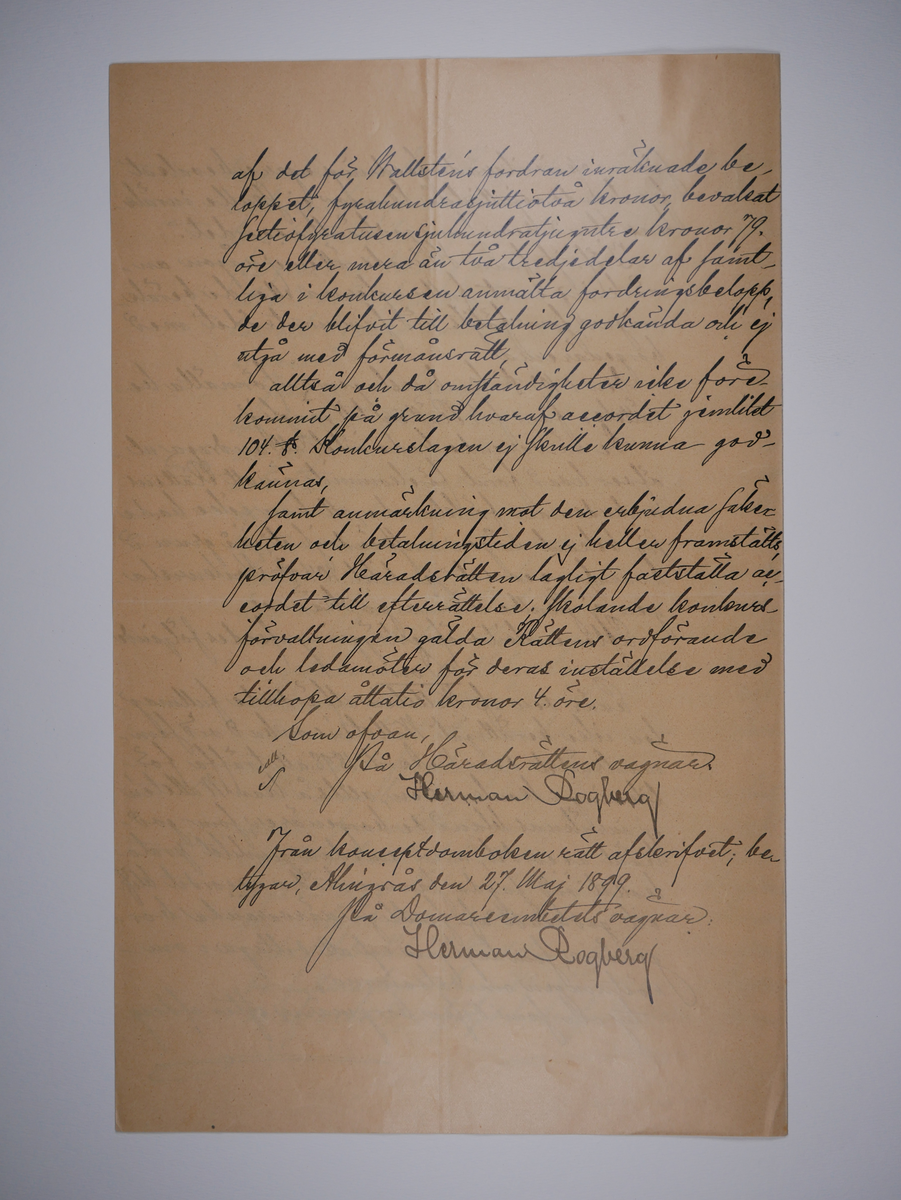 af det för Wallsténs fordran inräknade be-
loppet, fyrahundrasjuttiotvå kronor, bevakat
sextiofyratusensjuhundratjugutre kronor 79.
öre eller mera än två tredjedelar af samt-
liga i konkursen anmälta fordringsbelopp,
de der blifvit till betalning godkända och ej
utgå med förmånsrätt,
alltså och då omständigheter icke före-
kommit på grund hvaraf accordet jemlikt
104. §. Konkurslagen ej skulle kunna god-
kännas,
samt anmärkning mot den erbjudna säker-
heten och betalningstiden ej heller framställts,
pröfvar Häradsrätten lagligt fastställa ac-
cordet till efterrättelse; skolande konkurs-
förvaltningen gälda Rättens ordförande
och ledamöter för deras inställelse med
tillhopa åttatio kronor 4. öre.
Som ofvan,
På Häradsrättens vägnar:
Herman Rogberg
Från konceptdomboken rätt afskrifvet; be-
tygar, Alingsås den 27. Maj 1899.
På Domareembetets vägnar:
Herman Rogberg